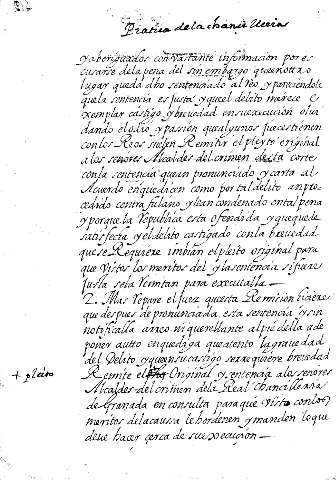 Pratica de la chancilleria
y aberiguados con vastante informacion por es
cusarse de la pena del sin embargo que en otro
lugar queda dho sentenciado al Reo y pareciendole
que la sentencia es justa, y que el delito merece e
xemplar castigo, y brevedad en su execucion olvi
dando el odio, y passion que algunos jueces tienen
con los Reos suelen Remitir el pleyto original
a los señores Alcaldes del crimen de esta corte
con la sentencia que an pronunciado y carta al
Acuerdo en que dicen como por tal delito an pro
cedido contra fulano, y le an condenado en tal pena
y porque la Republica esta ofendida, y que quede
satisfecha y el delito castigado con la brevedad
que se Requiere imbian el pleito original para
que vistos los meritos del y la sentencia si fuere
justa se la Remitan para executalla.
2. Mas repare el juez que esta Remision hiciere
que despues de pronunciada esta sentencia, y sin
notificalla a reo ni querellante al pie della a de
poner auto en que diga que atento la gravedad
del Delito, y que en su castigo se requiere brevedad
+ pleito
Remite el + Original, y sentencia a los señores
Alcaldes del crimen de la Real Chancilleria
de Granada en consulta para que visto con los
meritos de la causa le hordenen y manden lo que
deve hacer cerca de su execucion